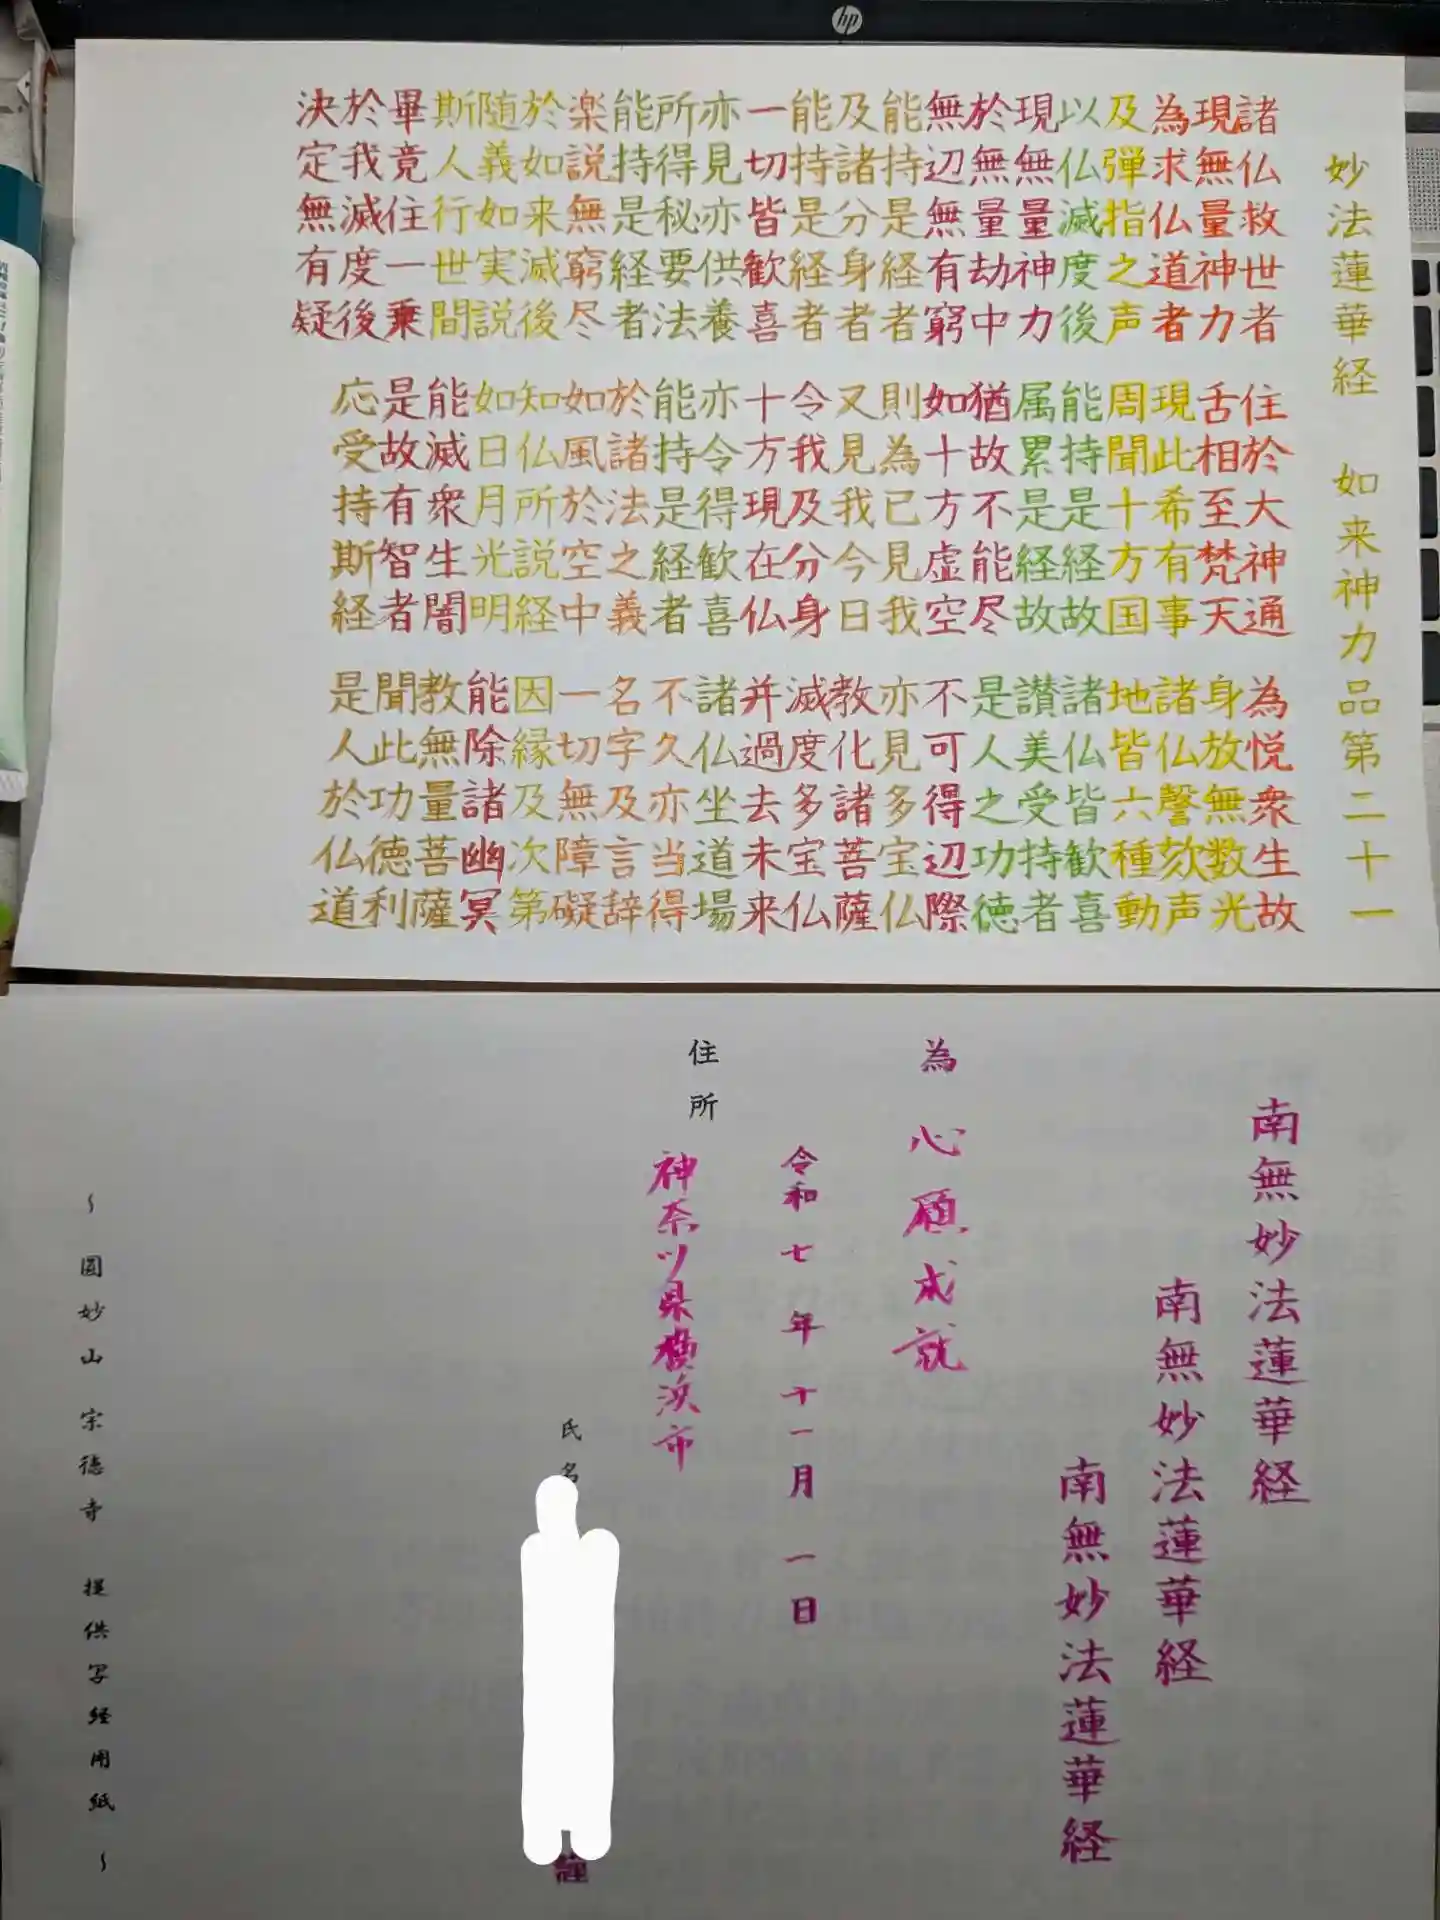 hp
妙法蓮華経 如来神力品第二十一
諸仏救世者 住於大神通 為悦衆生故
現無量神力 舌相至梵天 身放無数光
為求仏道者 現此希有事 諸仏謦欬声
及弾指之声 周聞十方国 地皆六種動
以仏滅度後 能持是経故 諸仏皆歓喜
現無量神力 属累是経故 讃美受持者
於無量劫中 猶故不能尽 是人之功徳
無辺無有窮 如十方虚空 不可得辺際
能持是経者 則為已見我 亦見多宝仏
及諸分身者 又見我今日 教化諸菩薩
能持是経者 令我及分身 滅度多宝仏
一切皆歓喜 十方現在仏 并過去未来
亦見亦供養 亦令得歓喜 諸仏坐道場
所得秘要法 能持是経者 不久亦当得
能持是経者 於諸法之義 名字及言辞
楽説無窮尽 如風於空中 一切無障礙
於如来滅後 知仏所説経 因縁及次第
随義如実説 如日月光明 能除諸幽冥
斯人行世間 能滅衆生闇 教無量菩薩
畢竟住一乗 是故有智者 聞此功徳利
於我滅度後 応受持斯経 是人於仏道
決定無有疑
南無妙法蓮華経
南無妙法蓮華経
南無妙法蓮華経
為 心願成就
令和七年十一月一日
住所 神奈川県横浜市
氏名
～ 圓妙山 宗徳寺 提供写経用紙 ～